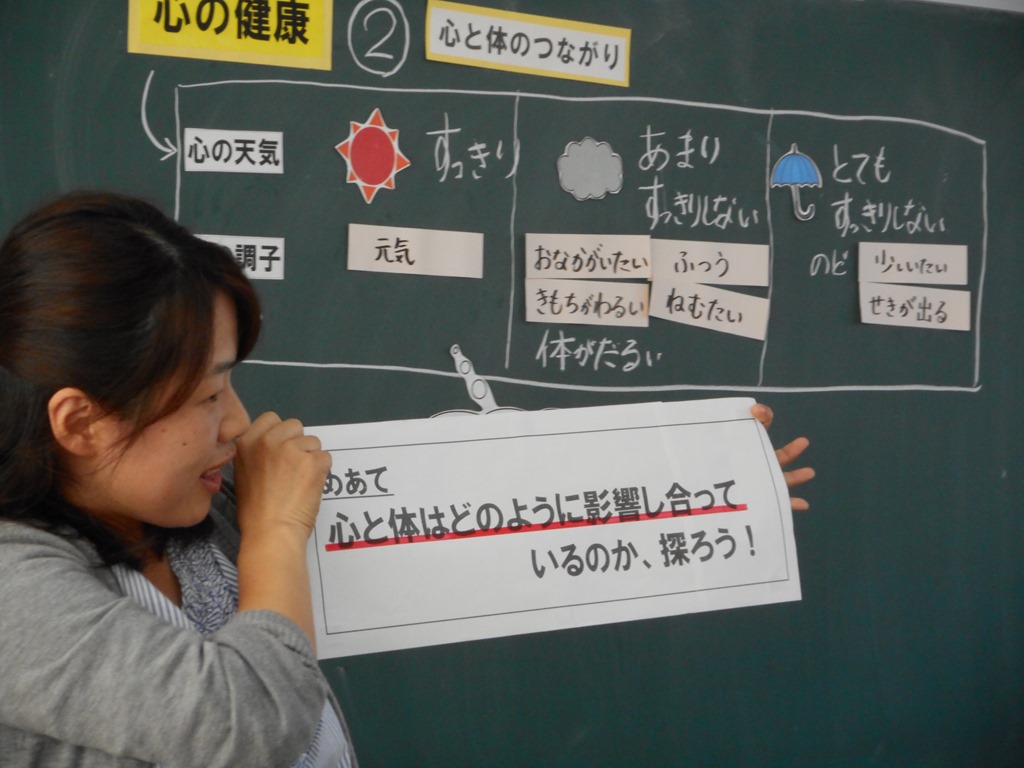 心の健康
②
心と体のつながり
心の天気
すっきり
あまり
すっきりしない
とても
すっきりしない
調子
元気
おなかがいたい
ふつう
きもちがわるい
ねむたい
体がだるい
のど
少しいたい
せきが出る
めあて
心と体はどのように影響し合って
いるのか、探ろう！